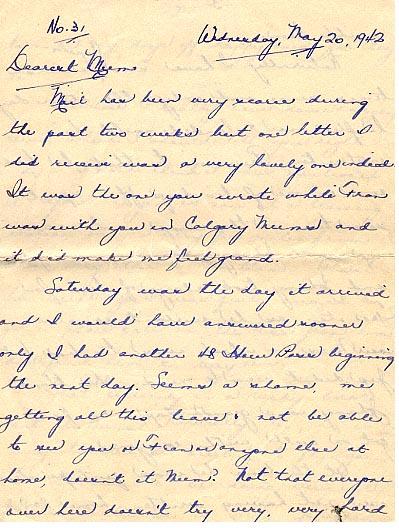 No. 31
Wednesday, May 20, 1942
Dearest Mum
Mail has been very scarce during
the past two weeks but one letter I
did receive was a very lovely one indeed.
It was the one you wrote while Fran
was with you in Calgary Mums and
it did make me feel grand.
Saturday was the day it arrived
and I would have answered sooner
only I had another 48 Hour Pass beginning
the next day. Seems a shame, me
getting all this leave & not be able
to see you or Fran or anyone else at
home, doesn't it Mum? Not that everyone
over here doesn't try very, very hard